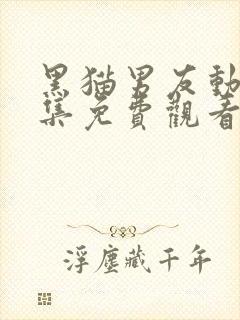 黑猫男友動
集免費觀看
浮塵藏千年